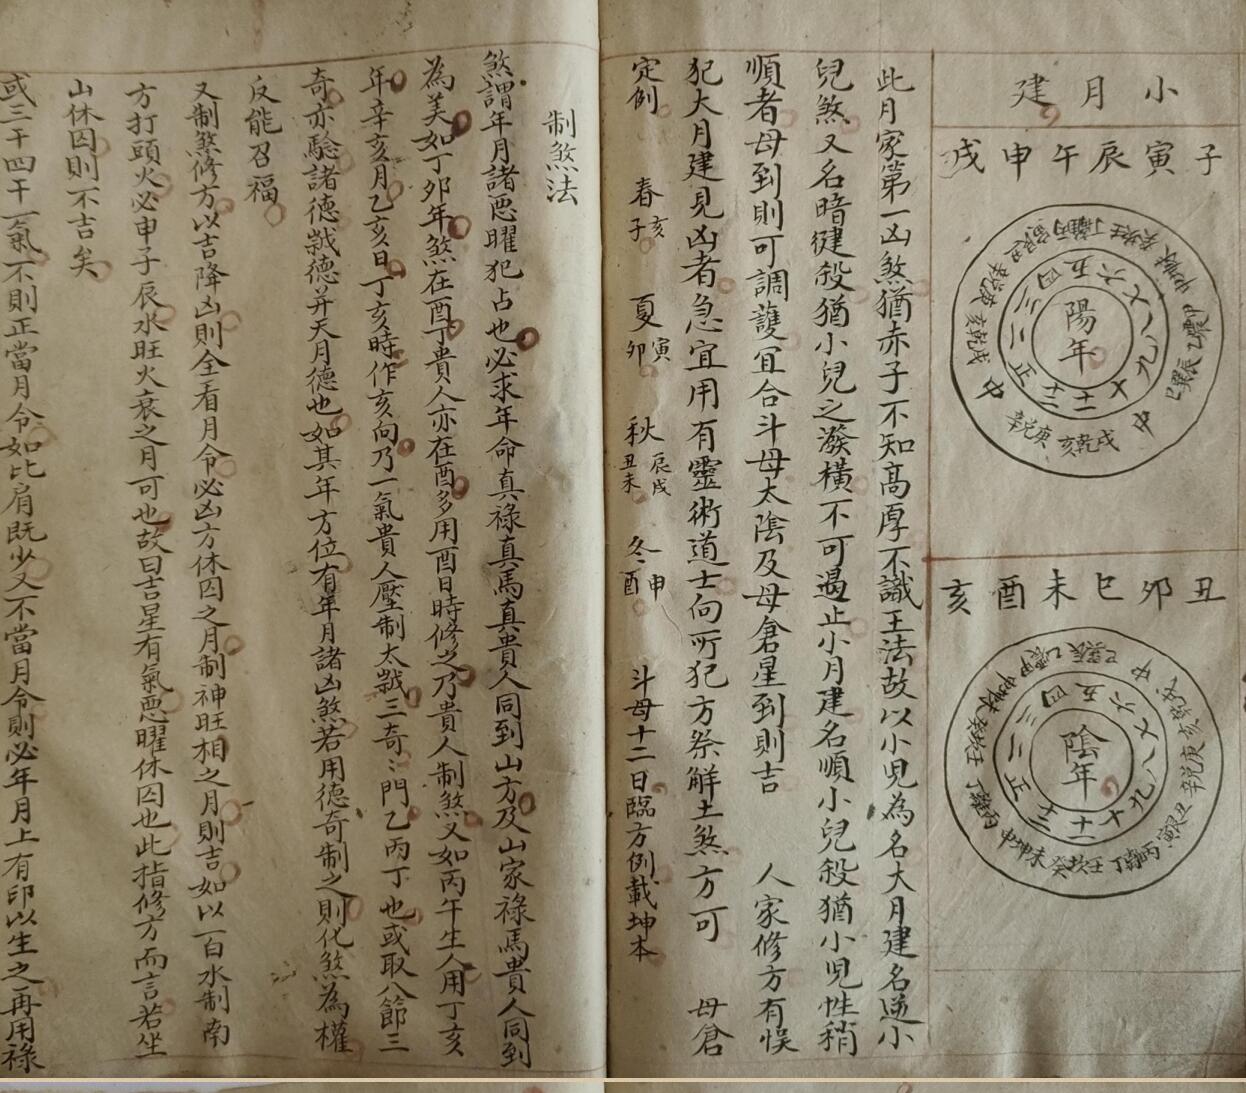 小月建
子寅辰午申戌
陽年
正二三四五六七八九十十一十二
中
戌乾亥
庚兌辛
丑卯巳未酉亥
陰年
正二三四五六七八九十十一十二
中
此月家第一凶煞猶赤子不知高厚不識王法故以小児為名大月建名逆小
兒煞又名暗建殺猶小兒之潑橫不可遏止小月建名順小兒殺猶小児性稍
順者母到則可調護宜合斗母太陰及母倉星到則吉　人家修方有悮
犯大月建見凶者急宜用有靈術道士向所犯方祭解土煞方可　母倉
定例　春亥子　夏寅卯　秋辰戌丑未　冬申酉　斗母十二日臨方例載坤本
制煞法
煞謂年月諸惡曜犯占也必求年命真祿真馬真貴人同到山方及山家祿馬貴人同到
為美如丁卯年煞在酉丁貴人亦在酉多用酉日時修之乃貴人制煞又如丙午生人用丁亥
年辛亥月乙亥日丁亥時作亥向乃一氣貴人壓制太歲三奇三門乙丙丁也或取八節三
奇亦驗諸德歲德并天月德也如其年方位有年月諸凶煞若用德奇制之則化煞為權
反能召福
又制煞修方以吉降凶則全看月令必凶方休囚之月制神旺相之月則吉如以一白水制南
方打頭火必申子辰水旺火衰之月可也故曰吉星有氣惡曜休囚也此指修方而言若坐
山休囚則不吉矣
或三干四干一氣不則正當月令如比肩既少又不當月令則必年月上有印以生之再用祿